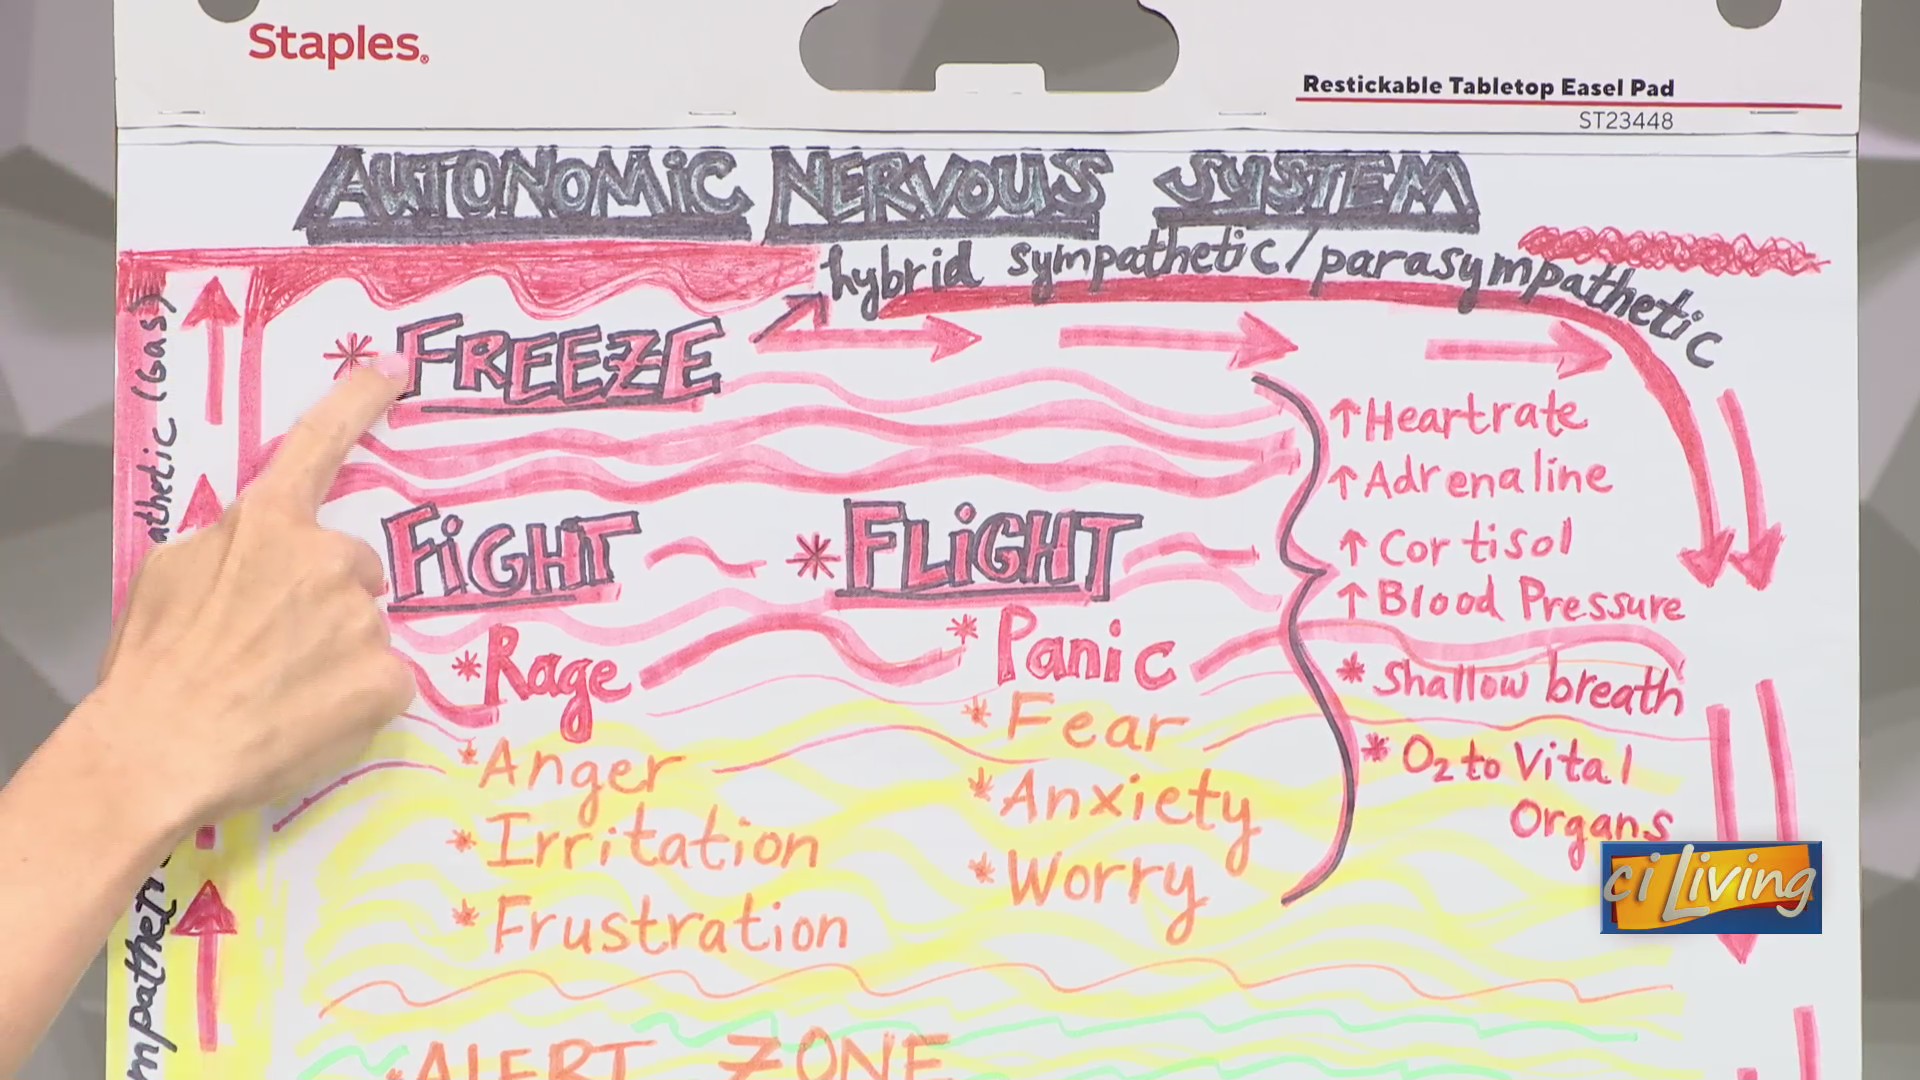 Staples.
Restickable Tabletop Easel Pad
ST23448
AUTONOMiC NERVOUS SYSTEM
hybrid sympathetic/parasympathetic
* FREEZE
↑Heartrate
↑Adrenaline
↑Cortisol
↑Blood Pressure
* Shallow breath
* O₂ to Vital
Organs
FiGHT
* FLiGHT
* Rage
* Anger
* Irritation
* Frustration
* Panic
* Fear
* Anxiety
* Worry
* ALERT ZONE
athetic (Gas)
mpathet
ci Living